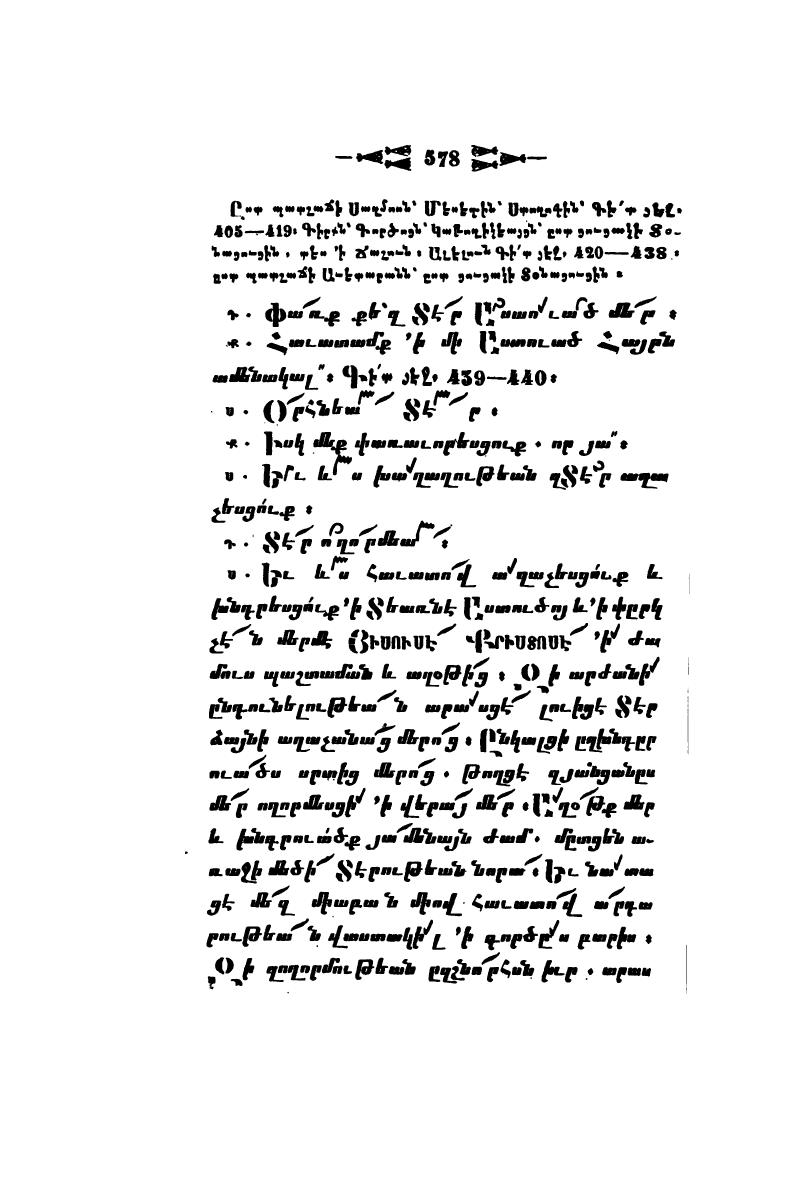 578
Ըստ պատշաճի Սաղմոսն՝ Մեսեդին՝ Ստողոգին՝ Գի՛տ յեջ.
405—419. Գիրքն՝ Գործոցն՝ Կաթողիկեայցն՝ ըստ ցուցակի Տօ-
նացուցին . տես ՚ի Ճաշուն . Ալէլուն Գի՛տ յեջ. 420—438 .
ըստ պատշաճի Աւետարանն՝ ըստ ցուցակի Տօնացուցին :
Դ . Փա՜ռք քե՛զ Տէ՜ր Աստուած մե՜ր :
Ք . Հաւատամք ՚ի մի Աստուած Հայրն
ամենակալ՞: Գի՛տ յեջ. 439—440:
Ս . Օրհնեա՜ Տէ՜ր :
Ք . Իսկ մեք փառաւորեսցուք . որ յա՞:
Ս . Եւ ևս խաղաղութեան զՏէր աղա
չեսցուք :
Դ . Տէ՜ր ողորմեա՜ :
Ս . Եւ ևս հաւատով աղաչեսցուք և
խնդրեսցուք ՚ի Տեառնէ Աստուծոյ և ՚ի փըրկ
չէ՜ն մերմէ ՅԻՍՈՒՍԷ՜ ՔՐԻՍՏՈՍԷ՜ ՚ի ժա
մուս պաշտաման և աղօթից : Զի արժանի
ընդունելութեա՜ն արասցէ՜ լուիցէ Տէր
ձայնի աղաչանաց մերոց : Ընկալցի ըզխնդըր
ուածս սրտից մերոց . թողցէ զյանցանըս
մե՜ր ողորմեսցի ՚ի վերայ մե՜ր : Աղօթք մեր
և խնդրուածք յամենայն ժամ . մըտցեն ա-
ռաջի մեծի՜ Տէրութեան նորա՜ : Եւ նա տա
ցէ մե՜զ միաբան միով հաւատով ա՜րդա
րութեա՜ն վաստակիլ ՚ի գործըս բարիս :
Զի զողորմութեան ըզշնո՜րհսն իւր . արաս